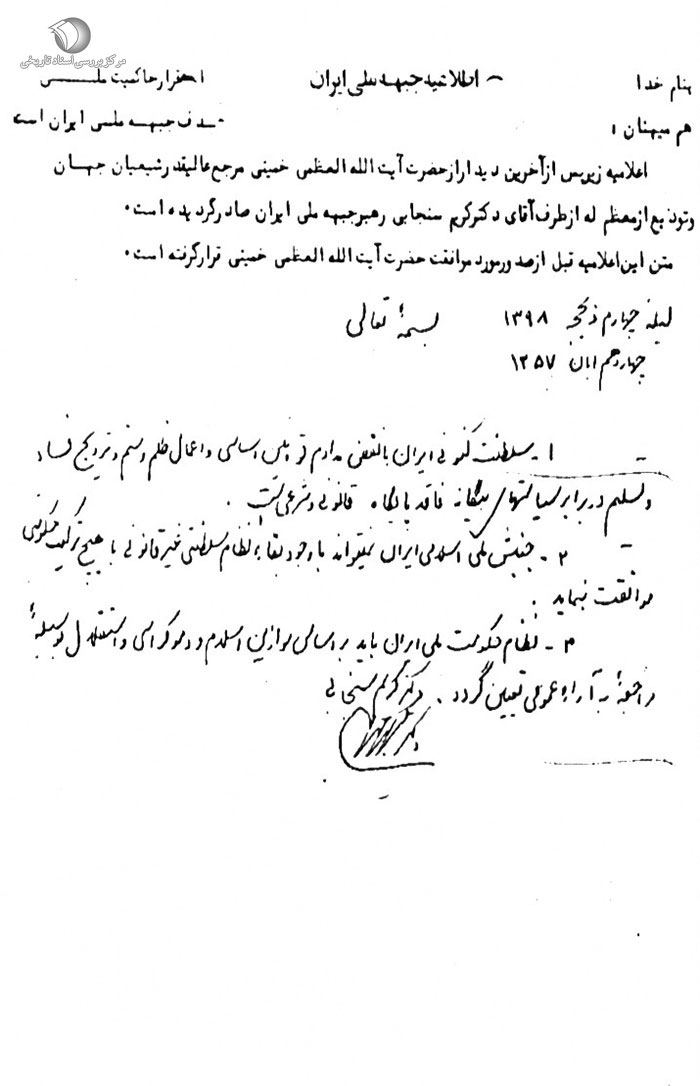 مرکز بررسی اسناد تاریخی
بنام خدا - اطلاعیه جبهه ملی ایران استقرار حاکمیت ملی
هم میهنان : هدف جبهه ملی ایران است
اعلامیه زیر پس از آخرین دیدار از حضرت آیت الله العظمی خمینی مرجع عالیقدر شیعیان جهان
و تودیع از معظم له از طرف آقای دکتر کریم سنجابی رهبر جبهه ملی ایران صادر گردیده است.
متن این اعلامیه قبل از صدور مورد موافقت حضرت آیت الله العظمی خمینی قرار گرفته است.
لیله چهارم ذیحجه ۱۳۹۸ بسمه تعالی
چهاردهم آبان ۱۳۵۷
۱- سلطنت کنونی ایران با نقض مداوم قوانین اساسی و اعمال ظلم و ستم و ترویج فساد
و تسلیم در برابر سیاستهای بیگانه فاقد پایگاه قانونی و شرعی است.
۲- جنبش ملی اسلامی ایران نمیتواند با وجود بقاء نظام سلطنتی غیر قانونی با هیچ ترکیب حکومتی
موافقت نماید.
۳- نظام حکومت ملی ایران باید بر اساس موازین اسلام و دموکراسی و استقلال بوسیلهٔ
مراجعهٔ به آراء عمومی تعیین گردد. دکتر کریم سنجابی